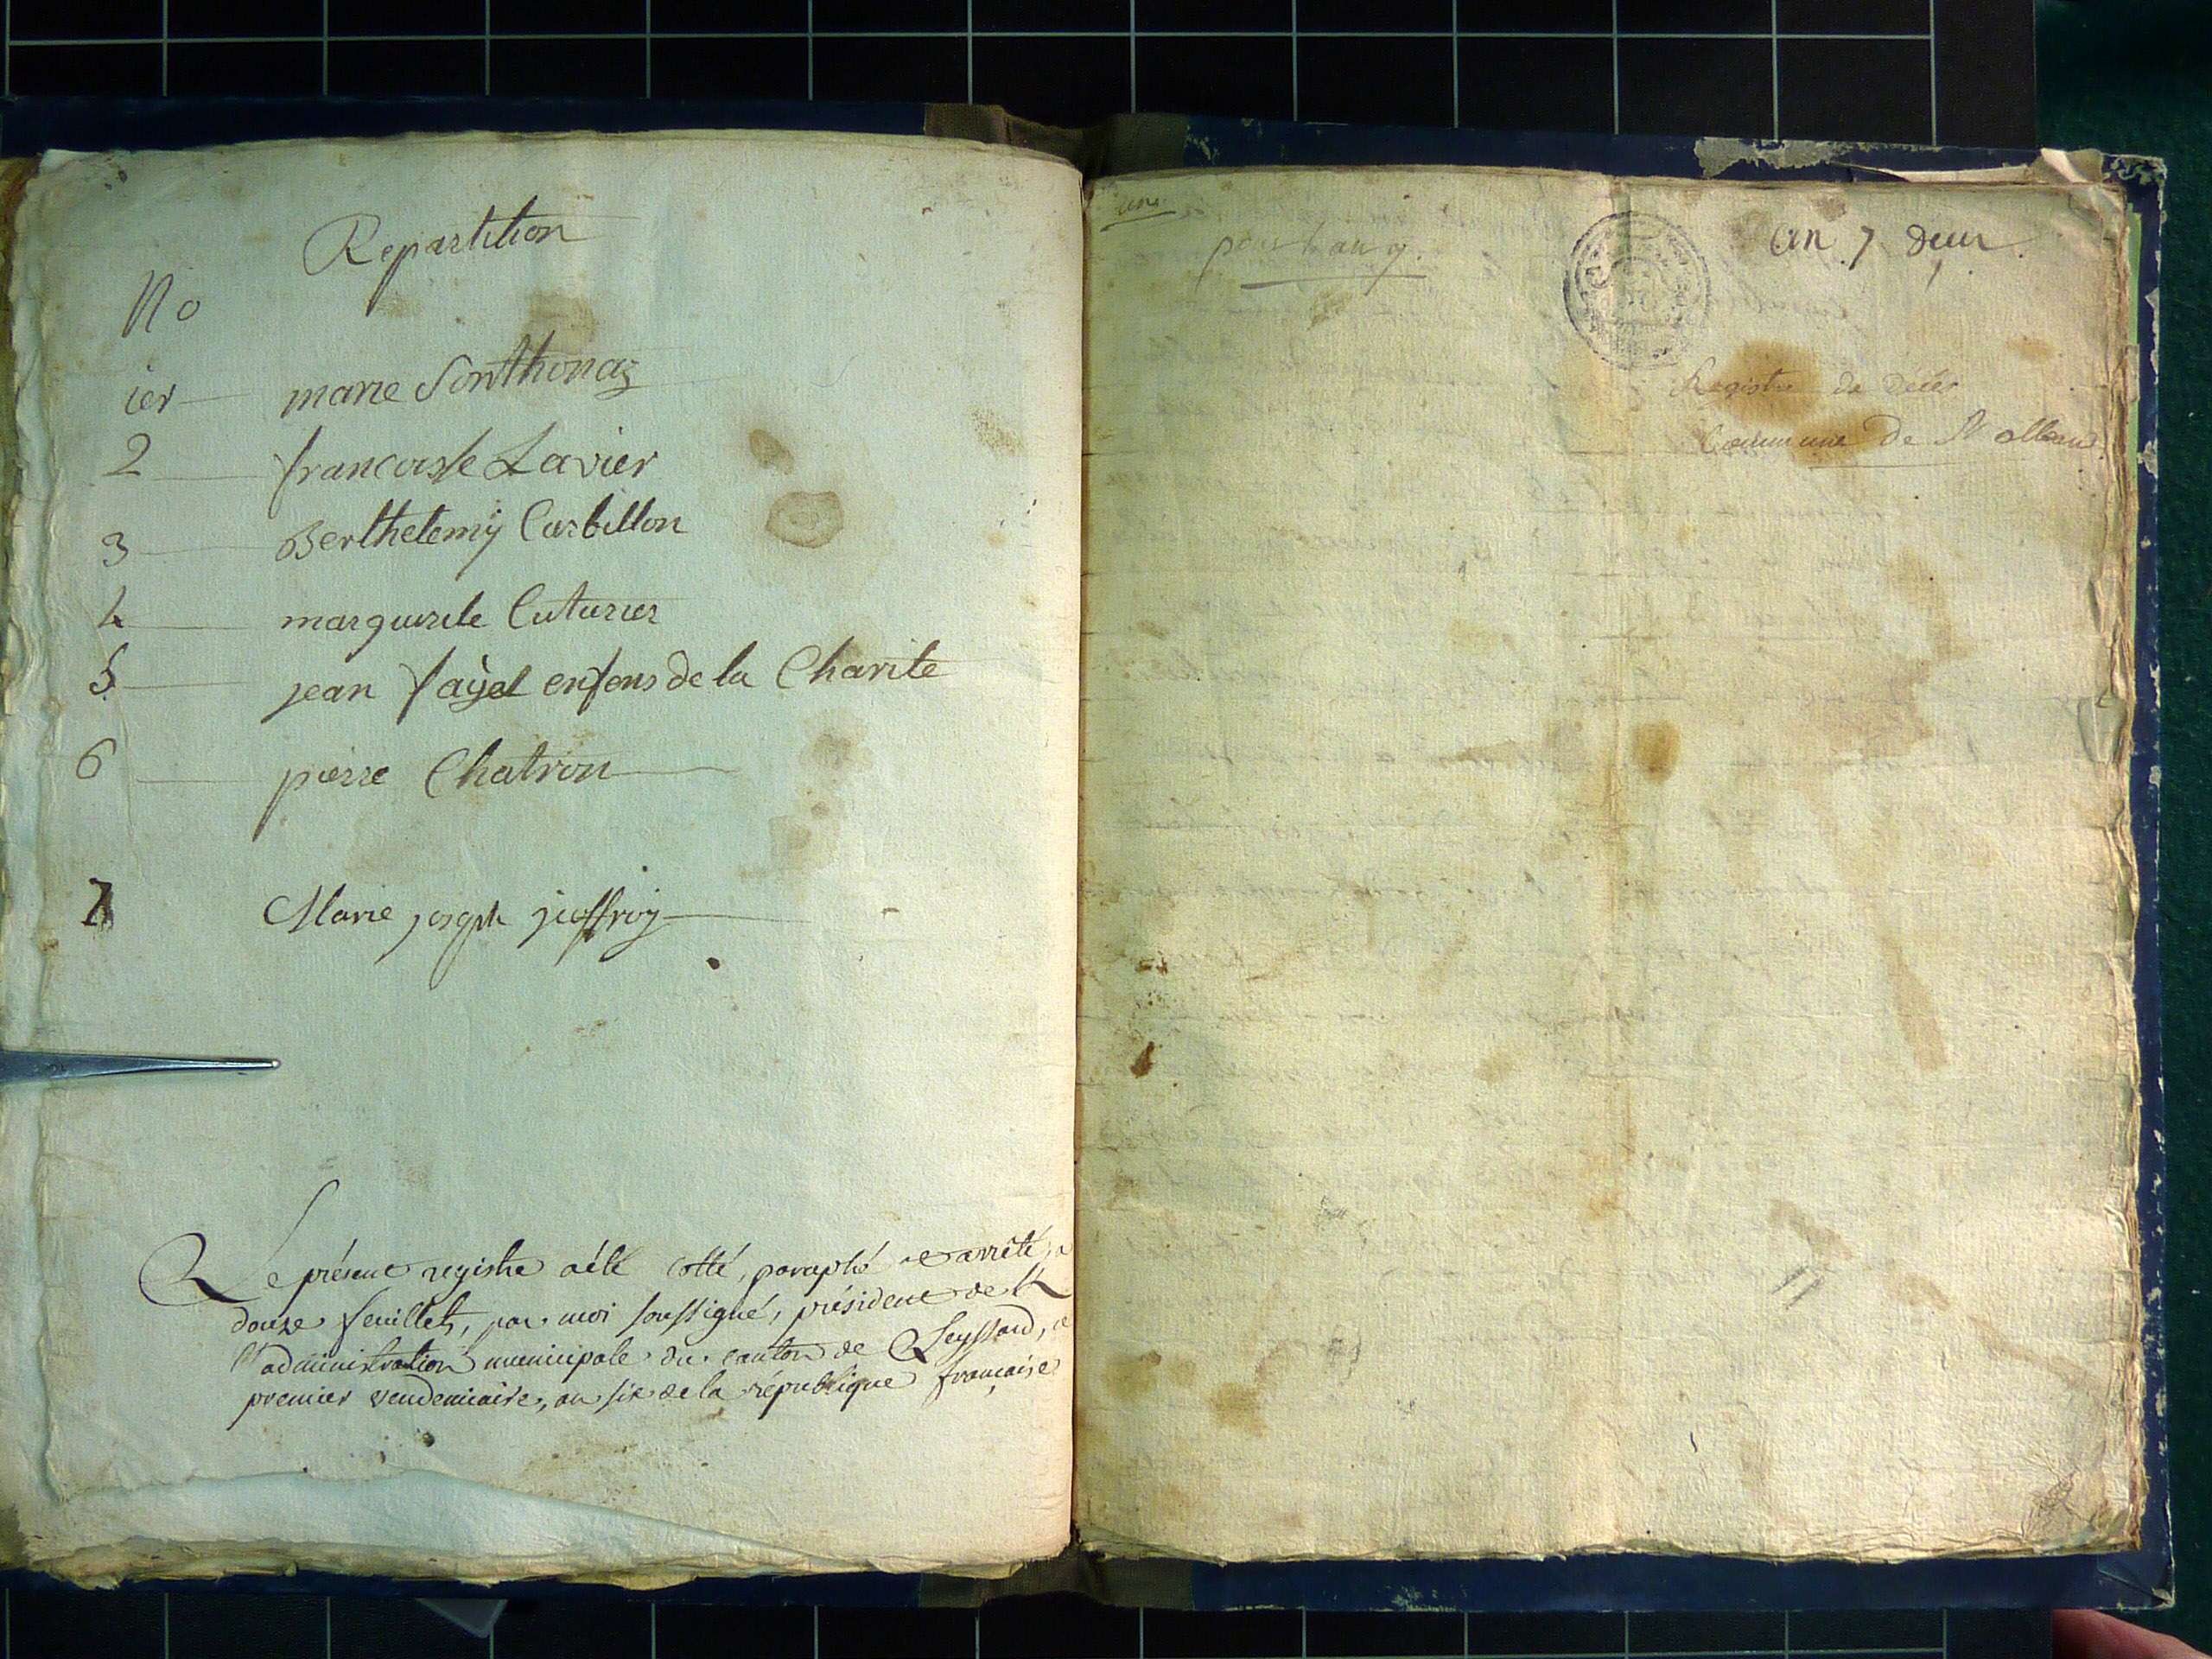 Repartition
No
ier marie Sonthonaz
2 francoisse Lavier
3 Berthelemÿ Corbillon
4 marguerite Cuturier
5 jean fayel enfens de la Charite
6 pierre Chatron
7 Marie joseph jioffroy
Le présent registre a été cotté, paraphé et arrêté, a
douze feuillets, par moi soussigné, président de l
l'administration municipale du canton de Leyssard, le
premier vendemiaire, an six de la république française
pour l'an 7.
an 7 deux
Registre de Décès
Commune de St alban